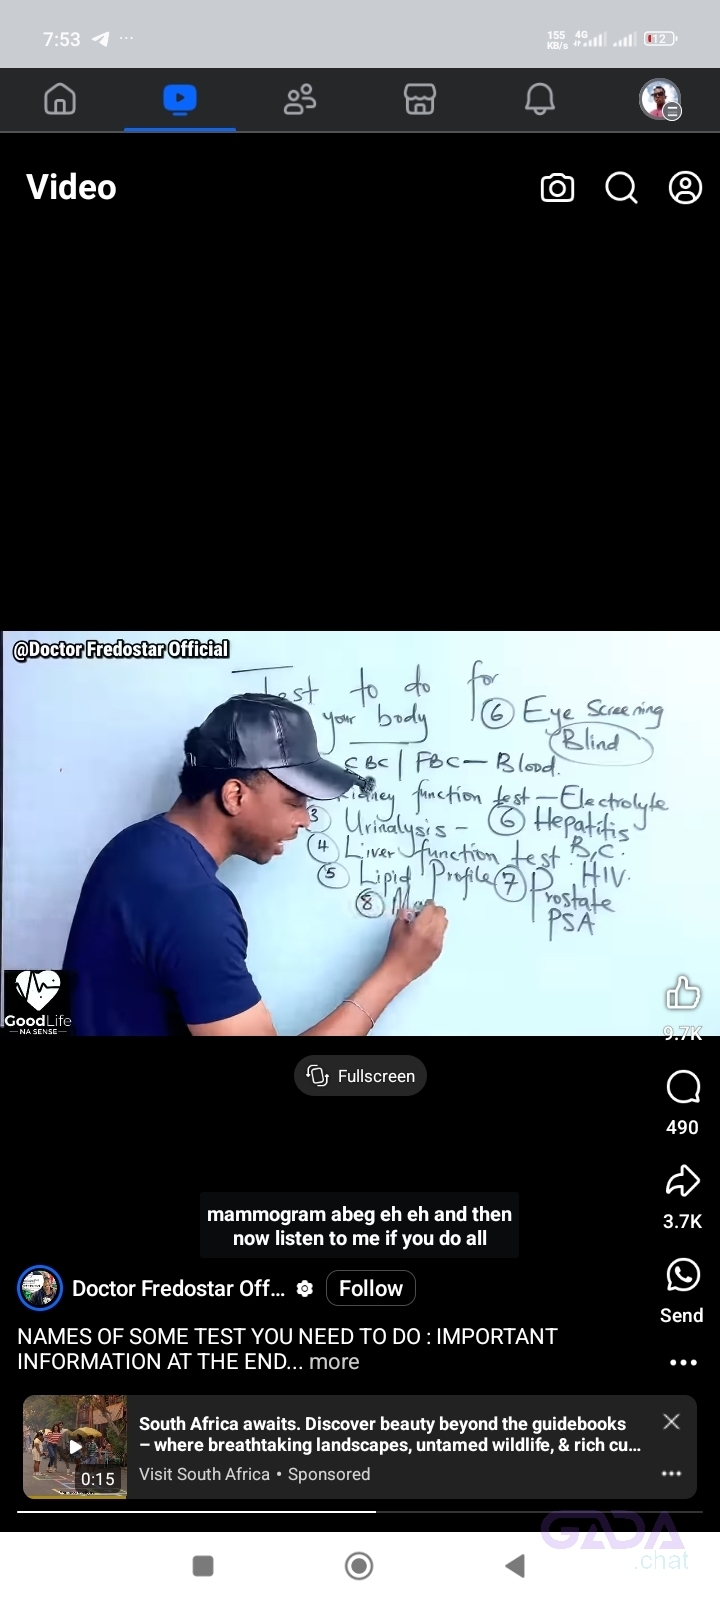 7:53
155 KB/s 4G 12
Video
@Doctor Fredostar Official
Test to do for
your body
6 Eye Screening
Blind
CBC | FBC — Blood.
Kidney function test — Electrolyte
3 Urinalysis — 6 Hepatitis
B,C.
4 Liver function test.
HIV.
5 Lipid Profile 7 Prostate
PSA
8 Ma
GoodLife
— NA SENSE —
9.7K
Fullscreen
490
mammogram abeg eh eh and then
now listen to me if you do all
3.7K
Doctor Fredostar Off... Follow
Send
NAMES OF SOME TEST YOU NEED TO DO : IMPORTANT
INFORMATION AT THE END... more
South Africa awaits. Discover beauty beyond the guidebooks
– where breathtaking landscapes, untamed wildlife, & rich cu...
0:15
Visit South Africa • Sponsored
GADA
.chat